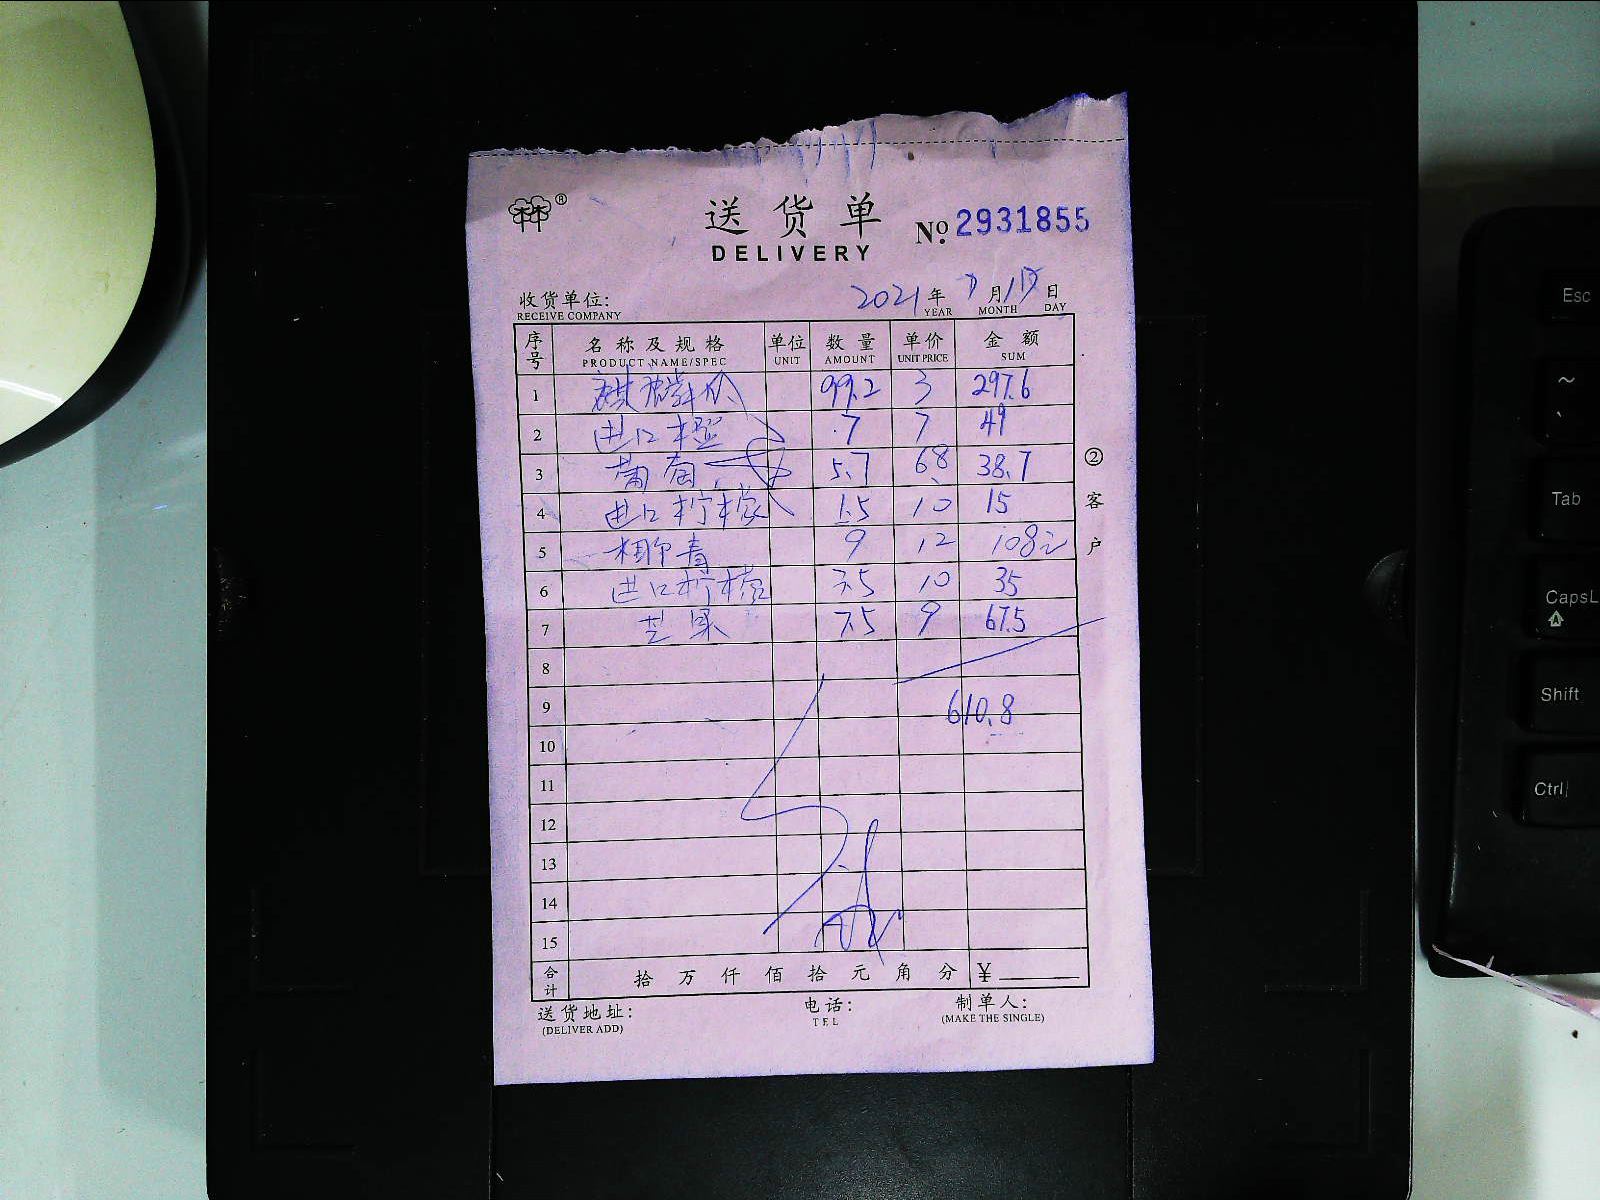 林®
送货单 №. 2931855
DELIVERY
收货单位: 2021年 7月 日
RECEIVE COMPANY YEAR MONTH DAY
序号 名称及规格 单位 数量 单价 金额
PRODUCT NAME/SPEC UNIT AMOUNT UNIT PRICE SUM
1 麒麟 99.2 3 297.6
2 进口橙 7 7 49
3 葡萄 5.7 6.8 38.7
4 进口柠檬 1.5 10 15
5 椰青 9 12 108元
6 进口柠檬 3.5 10 35
7 芒果 7.5 9 67.5
8
9 610.8
10
11
12
13
14
15
合计 拾万仟佰拾元角分 ¥
②客户
送货地址: 电话: 制单人:
(DELIVER ADD) TEL (MAKE THE SINGLE)
Esc
~
`
Tab
CapsL
Shift
Ctrl